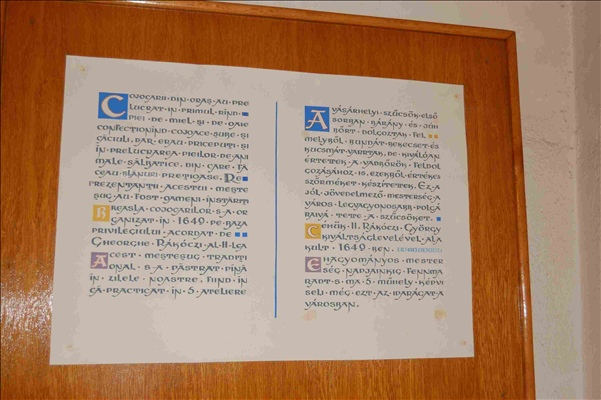 COJOCARII·DIN·ORAS·AU·PRE
LUCRAT·IN·PRIMUL·RIND·
PIEI·DE·MIEL·SI·DE·OAIE
CONFECTIONIND·COJOACE·SUBE·SI
CACIULI, DAR·ERAU·PRICEPUTI·SI
IN·PRELUCRAREA·PIEILOR·DE·ANI
MALE·SALBATICE, DIN·CARE·FA
CEAU·BLANURI·PRETIOASE. RE
PREZENTANTII·ACESTUI·MESTE
SUG·AU·FOST·OAMENI·INSTARITI
BREASLA·COJOCARILOR·S·A·OR
GANIZAT·IN·1649·PE·BAZA
PRIVILEGIULUI·ACORDAT·DE
GHEORGHE·RÁKÓCZI·AL·II·LEA
ACEST·MESTESUG·TRADITI
ONAL·S·A·PASTRAT·PINA
IN·ZILELE·NOASTRE, FIIND·IN
CA·PRACTICAT·IN·5·ATELIERE
A·VÁSÁRHELYI·SZŰCSÖK·ELSŐ
SORBAN·BÁRÁNY·ÉS·JUH
BŐRT·DOLGOZTAK·FEL
MELYBŐL·BUNDÁT·KEKECSET·ÉS
KUCSMÁT·VARRTAK, DE·KIVÁLÓAN
ÉRTETTEK·A·VADBŐRÖK·FELDOL
GOZÁSÁHOZ·IS, EZEKBŐL·ÉRTÉKES
SZŐRMÉKET·KÉSZÍTETTEK. EZ·A
JÓL·JÖVEDELMEZŐ·MESTERSÉG·A
VÁROS·LEGVAGYONOSABB·POLGÁ
RAIVÁ·TETTE·A·SZŰCSÖKET.
CÉHÜK·II. RÁKÓCZI·GYÖRGY
KIVÁLTSÁGLEVELÉVEL·ALA
KULT·1649·BEN.
E·HAGYOMÁNYOS·MESTER
SÉG·NAPJAINKIG·FENNMA
RADT·S·MA·5·MŰHELY·KÉPVI
SELI·MÉG·EZT·AZ·IPARÁGAT·A
VÁROSBAN.